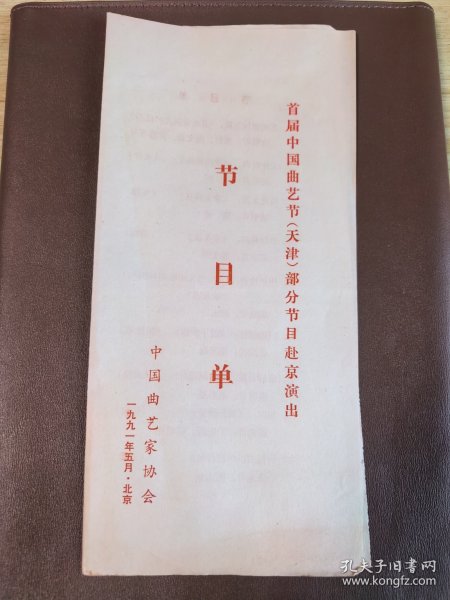 首届中国曲艺节(天津)部分节目赴京演出
节目单
中国曲艺家协会
一九九一年五月·北京
孔夫子旧书网
www.kongfz.com